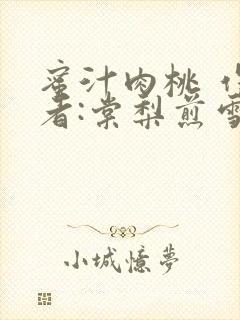 蜜汁肉桃
者:棠梨煎
小城憶夢